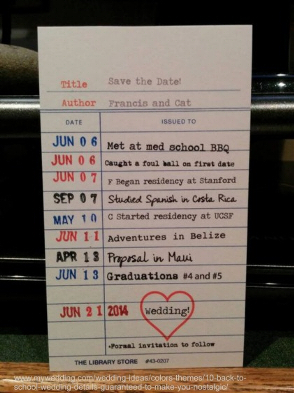 Title Save the Date!
Author Francis and Cat
DATE ISSUED TO
JUN 0 6 Met at med school BBQ
JUN 0 6 Caught a foul ball on first date
JUN 0 7 F Began residency at Stanford
SEP 0 7 Studied Spanish in Costa Rica
MAY 1 0 C Started residency at UCSF
JUN 1 1 Adventures in Belize
APR 1 3 Proposal in Maui
JUN 1 3 Graduations #4 and #5
JUN 2 1 2014 Wedding!
*Formal invitation to follow
THE LIBRARY STORE #43-0207
www.mywedding.com/wedding-ideas/colors-themes/10-back-to-
school-wedding-details-guaranteed-to-make-you-nostalgic/